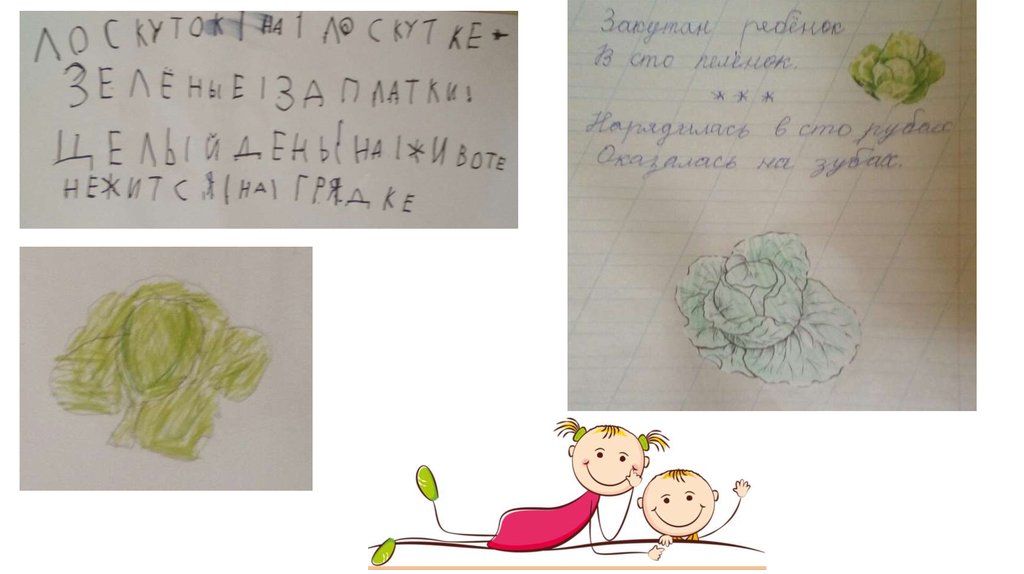 ЛОСКУТОК | НА | ЛОСКУТКЕ -
ЗЕЛЁНЫЕ | ЗАПЛАТКИ,
ЩЕЛЫЙ ДЕНЬ | НА | ЖИВОТЕ
НЕЖИТСЯ | НА | ГРЯДКЕ
Закутан ребёнок
В сто пелёнок.
***
Нарядилась в сто рубах
Оказалась на зубах.